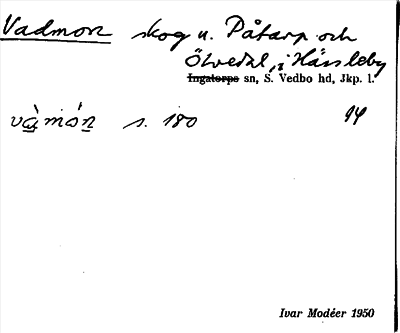 Vadmon skog u. Påtarp och
Ölvedal, i Hässleby
Ingatorps sn, S. Vedbo hd, Jkp. l.
vàmón s. 180 94
Ivar Modéer 1950